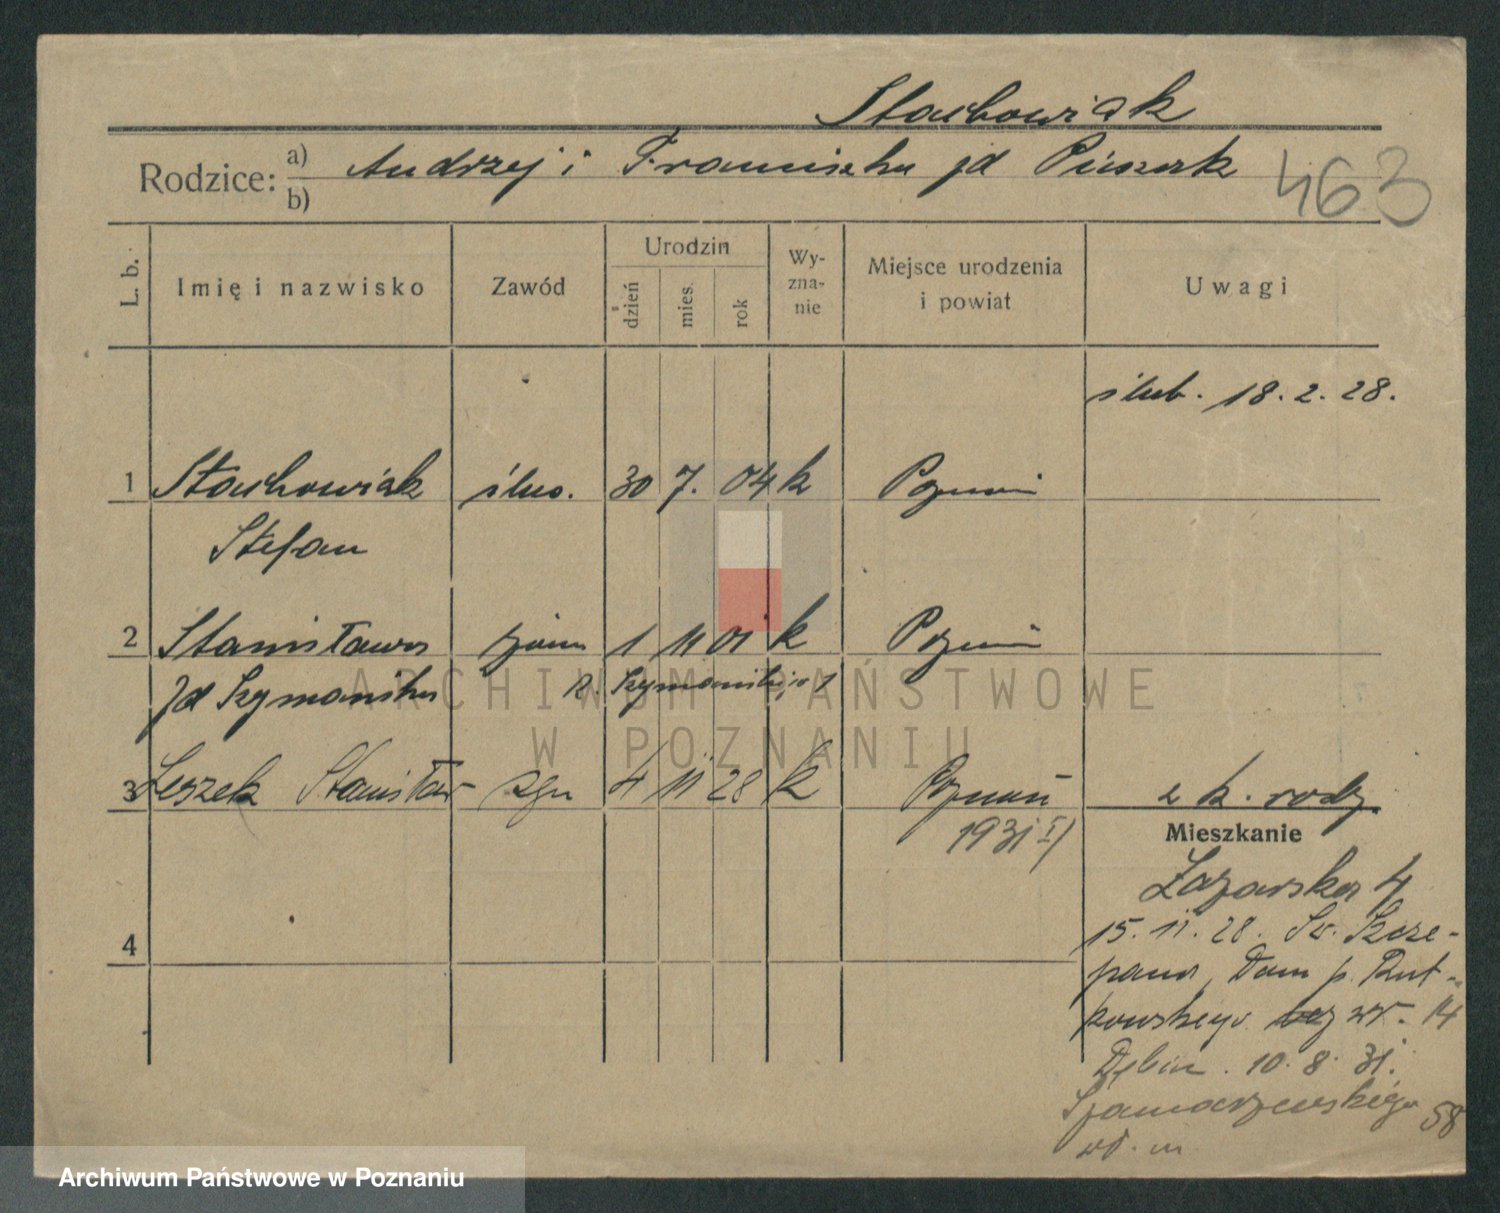 Stachowiak
Rodzice: a) Andrzej i Franciszka zd
b)
463
L. b.
Imię i nazwisko
Zawód
Urodzin
dzień
mies.
rok
Wy-
zna-
nie
Miejsce urodzenia
i powiat
Uwagi
ślub. 18. 2. 28.
1 Stachowiak ślus. 30 7. 04 k Poznań
Stefan
2 Stanisława żona 1 11 01 k Poznań
zd Szymańska
3 Leszek Stanisław syn 4 11 28 k Poznań z k. rodz.
1931 I/
Mieszkanie
Łazarska 4
15. 11. 28. Św. Szcze-
pana, Dom p. Rut-
kowskiego wł. 14
4
Dębin. 10. 8. 31.
Szamarzewskiego 58
wł. m
ARCHIWUM PAŃSTWOWE
W POZNANIU
Archiwum Państwowe w Poznaniu